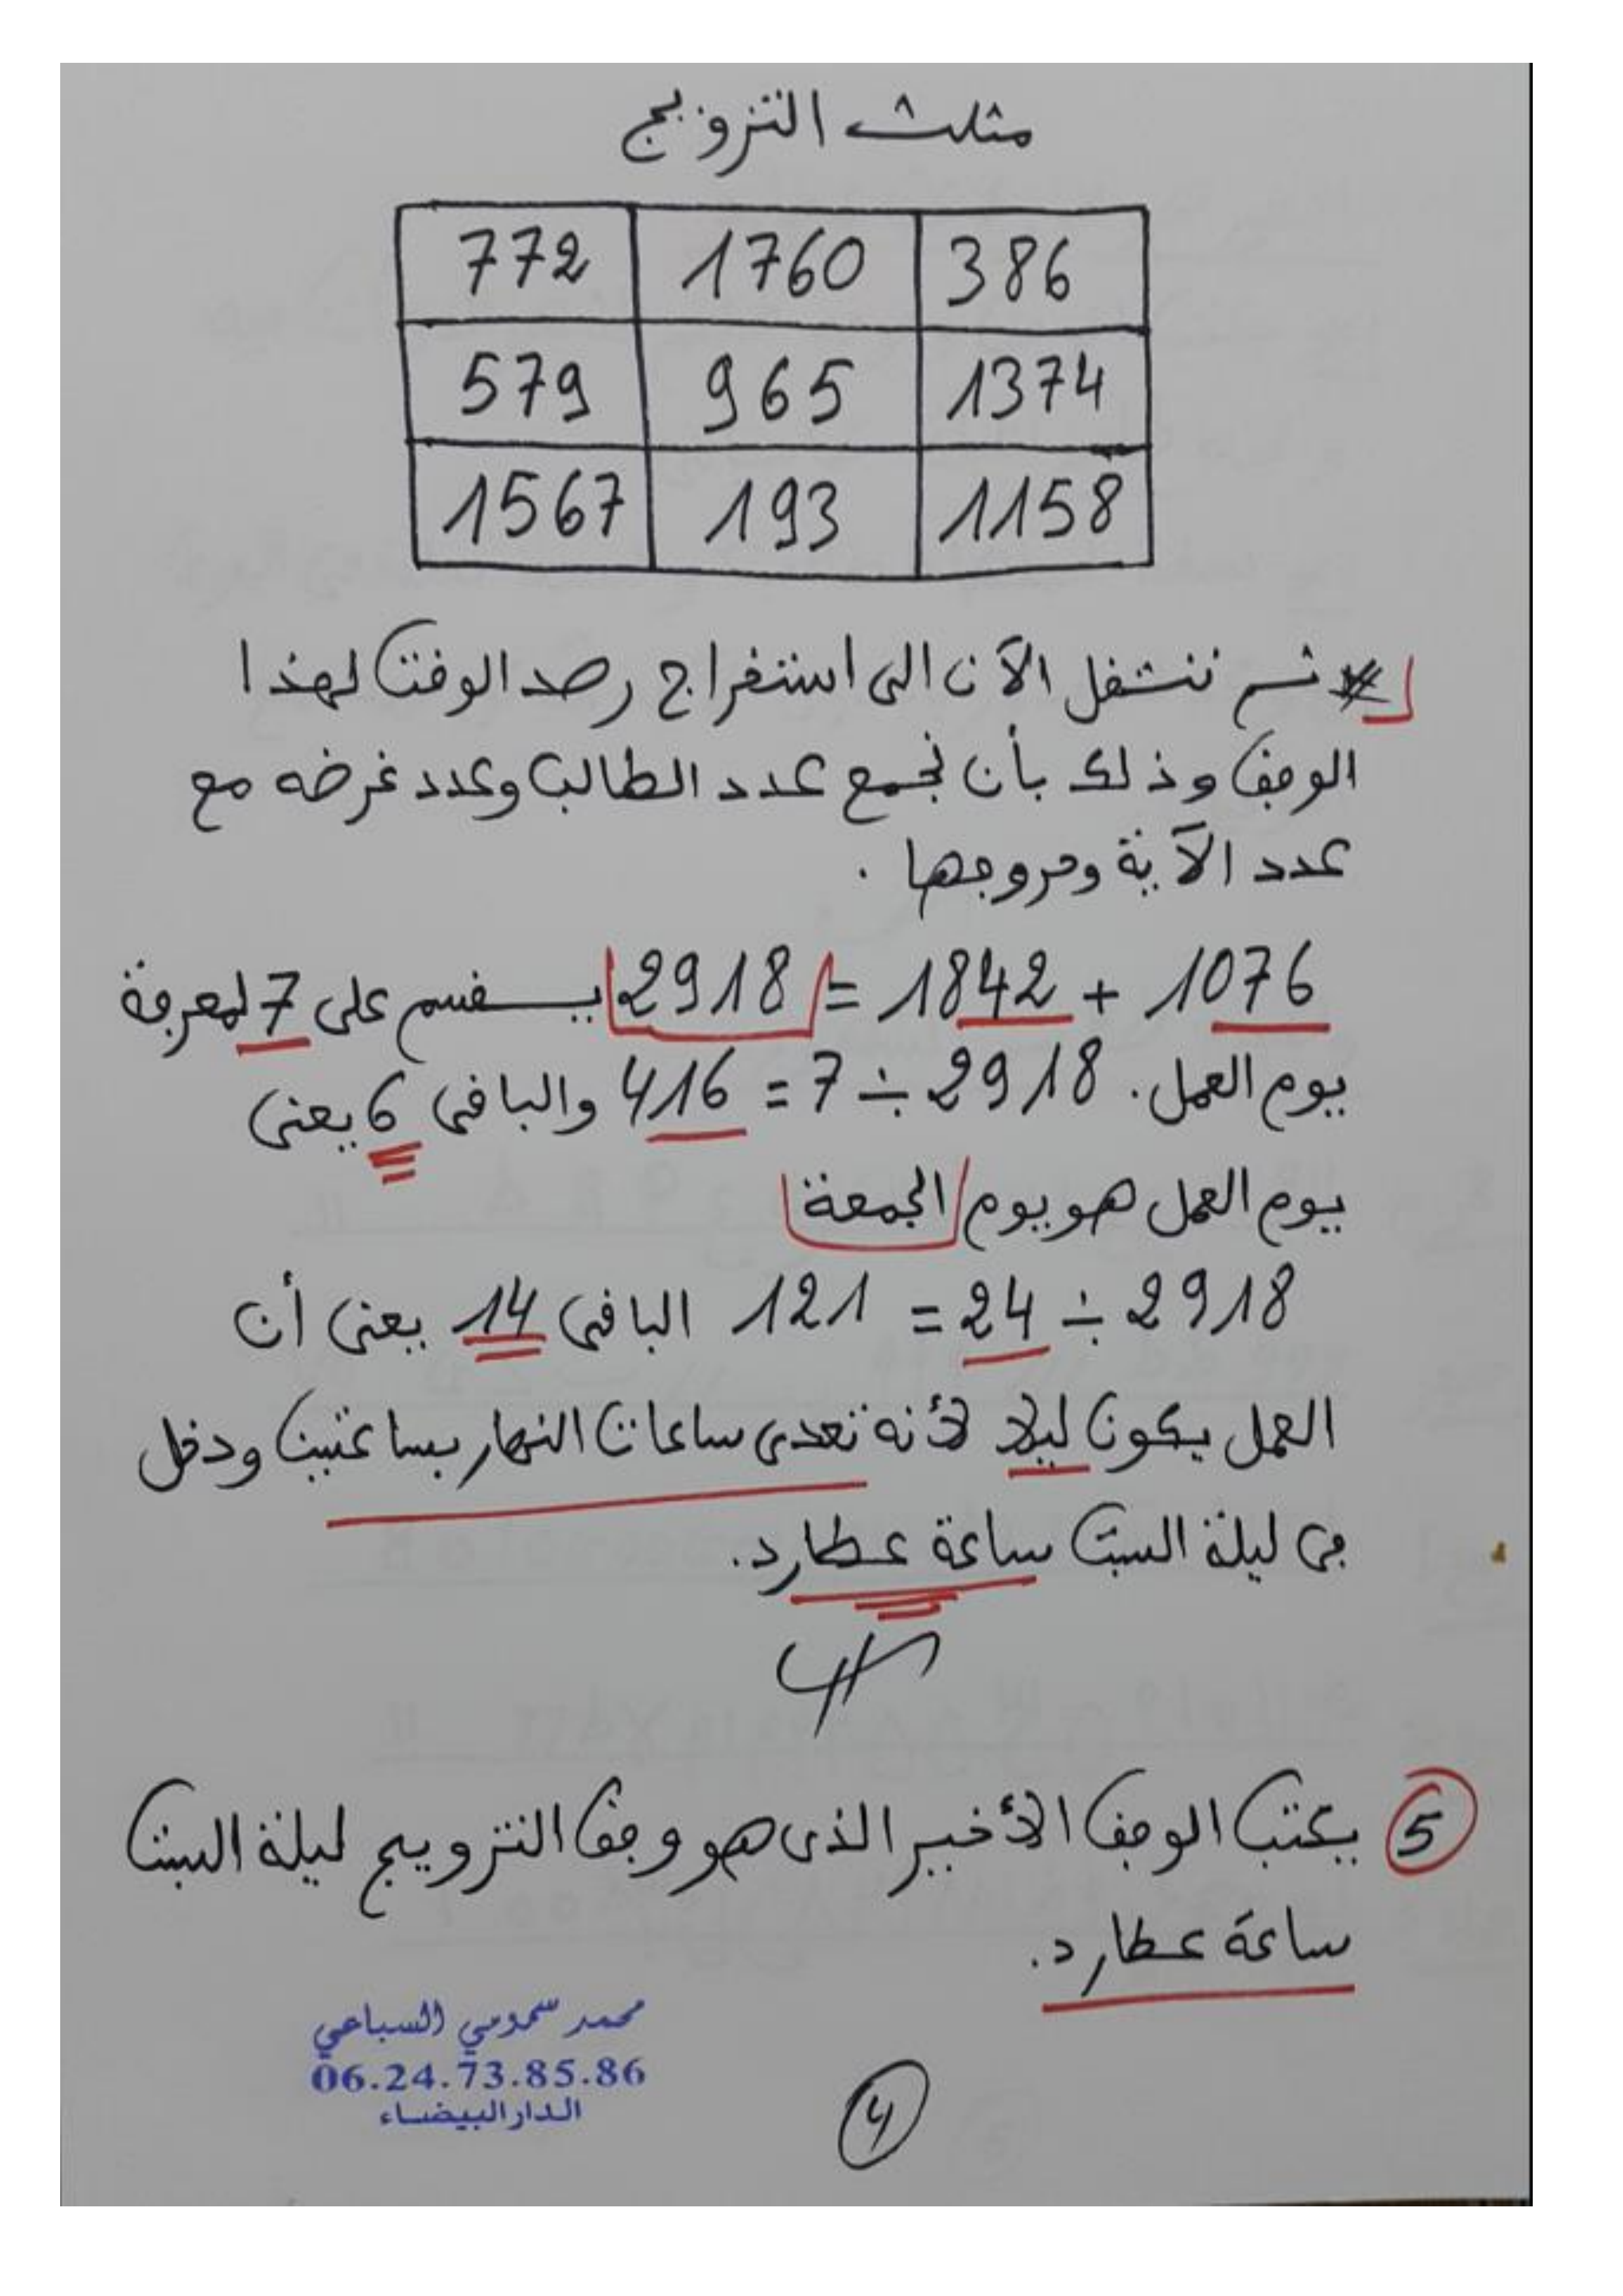 مثلث التزويج
772 1760 386
579 965 1374
1567 193 1158
* ثم ننتقل الآن الى استخراج رصد الوقت لهذا
الوفق وذلك بأن نجمع عدد الطالب وعدد غرضه مع
عدد الآية وحروفها .
1076 + 1842 = 2918 يـقسم على 7 لمعرفة
يوم العمل. 2918 ÷ 7 = 416 والباقي 6 يعنى
يوم العمل هو يوم الجمعة
2918 ÷ 24 = 121 الباقي 14 يعنى أن
العمل يكون ليلا لأنه تعدى ساعات النهار بساعتين ودخل
في ليلة السبت ساعة عطارد.
5 يكتب الوفق الأخير الذى هو وفق التزويج ليلة السبت
ساعة عطارد.
محمد سمومي السباعي
06.24.73.85.86
الدار البيضاء
4